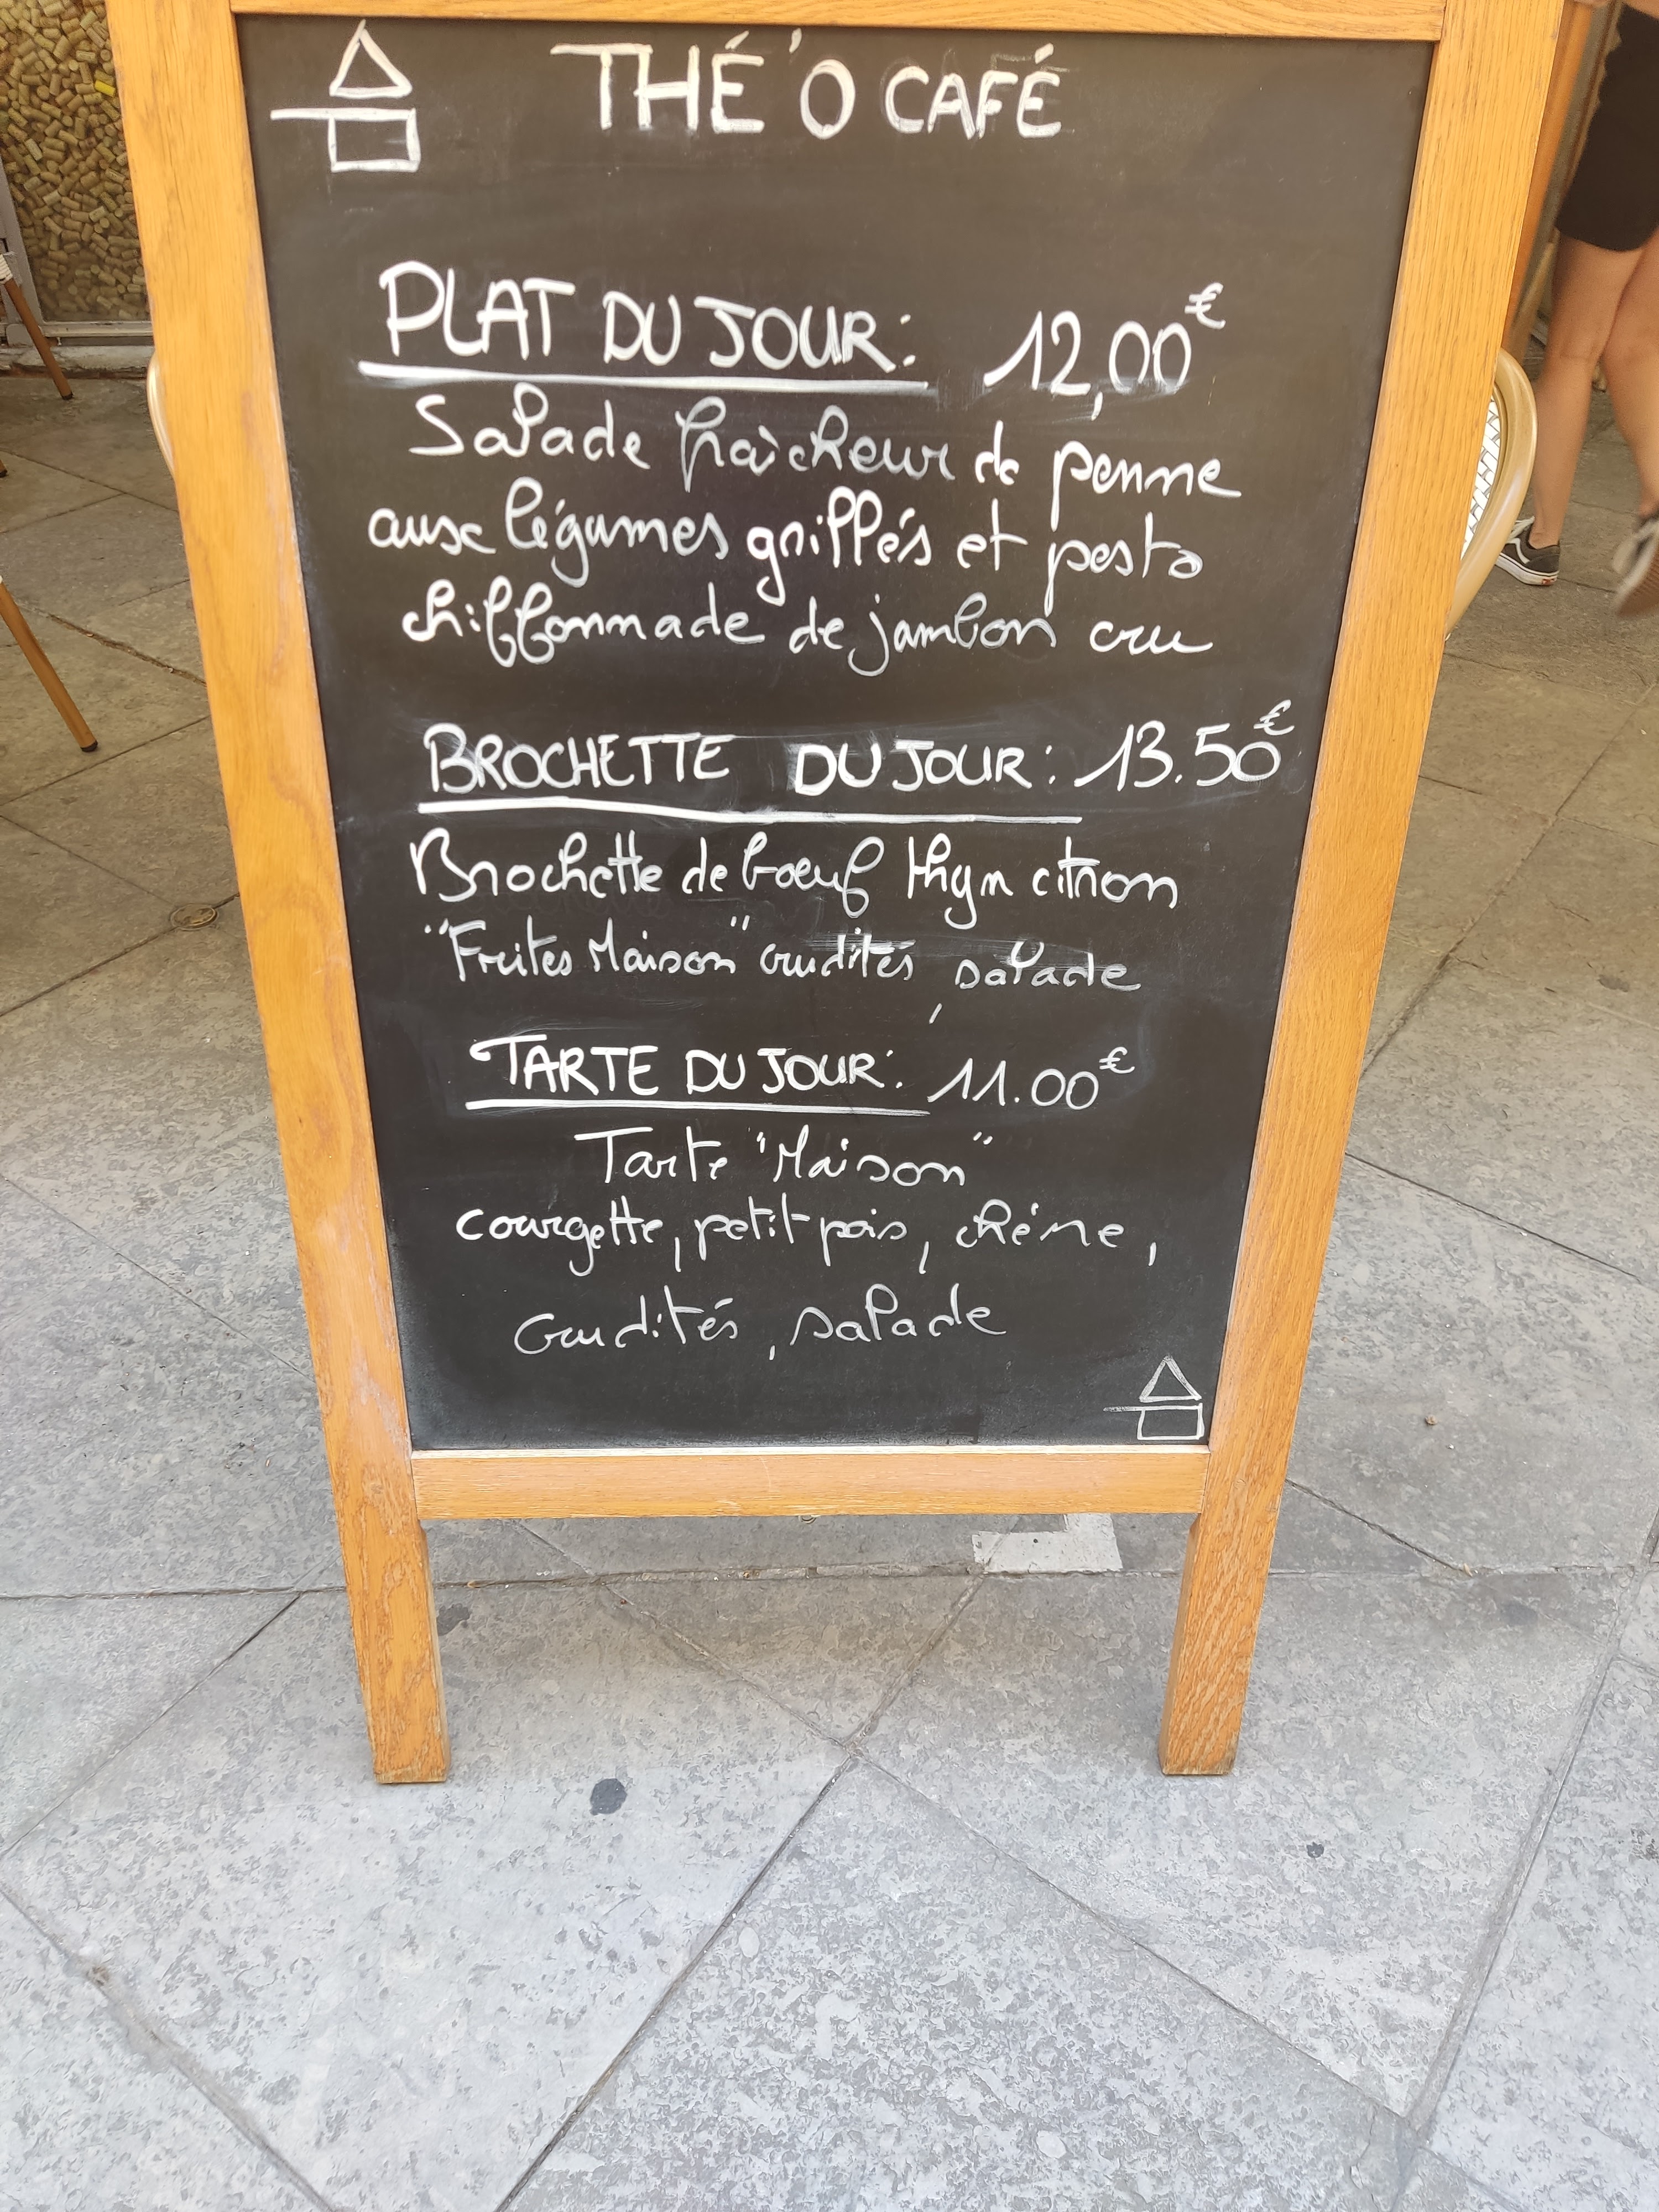 THÉ'O CAFÉ
PLAT DU JOUR: 12,00€
Salade fraîcheur de penne
aux légumes grillés et pesto
chiffonnade de jambon cru
BROCHETTE DU JOUR: 13.50€
Brochette de bœuf thym citron
"Frites Maison" crudités, salade
TARTE DU JOUR: 11.00€
Tarte "Maison"
courgette, petit pois, chêne,
crudités, salade